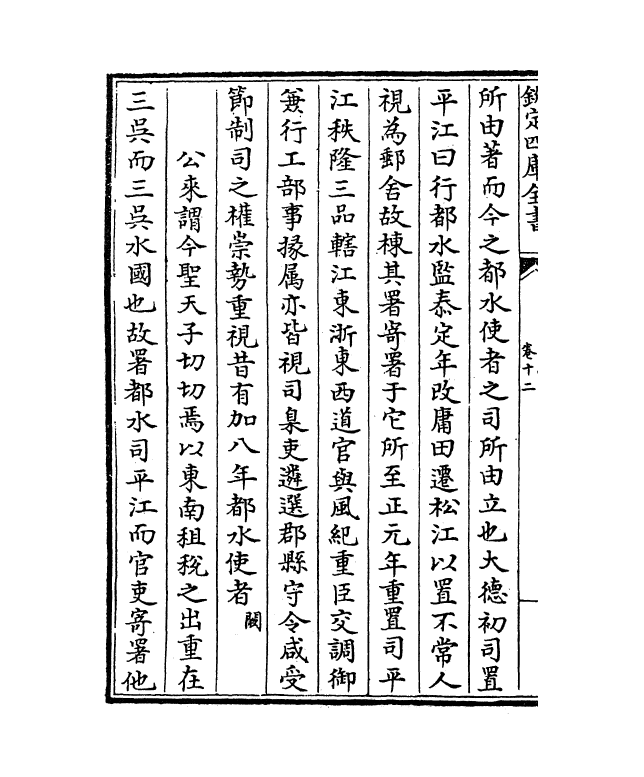 欽定四庫全書
卷十二
所由著而今之都水使者之司所由立也大德初司置
平江曰行都水監泰定年改庸田遷松江以置不常人
視為郵舍故棟其署寄署于它所至正元年重置司平
江秩隆三品轄江東浙東西道官與風紀重臣交調御
兼行工部事掾属亦皆視司臬吏遴選郡縣守令咸受
節制司之權崇勢重視昔有加八年都水使者闕
公來謂今聖天子切切焉以東南租稅之出重在
三吳而三吳水國也故署都水司平江而官吏寄署他